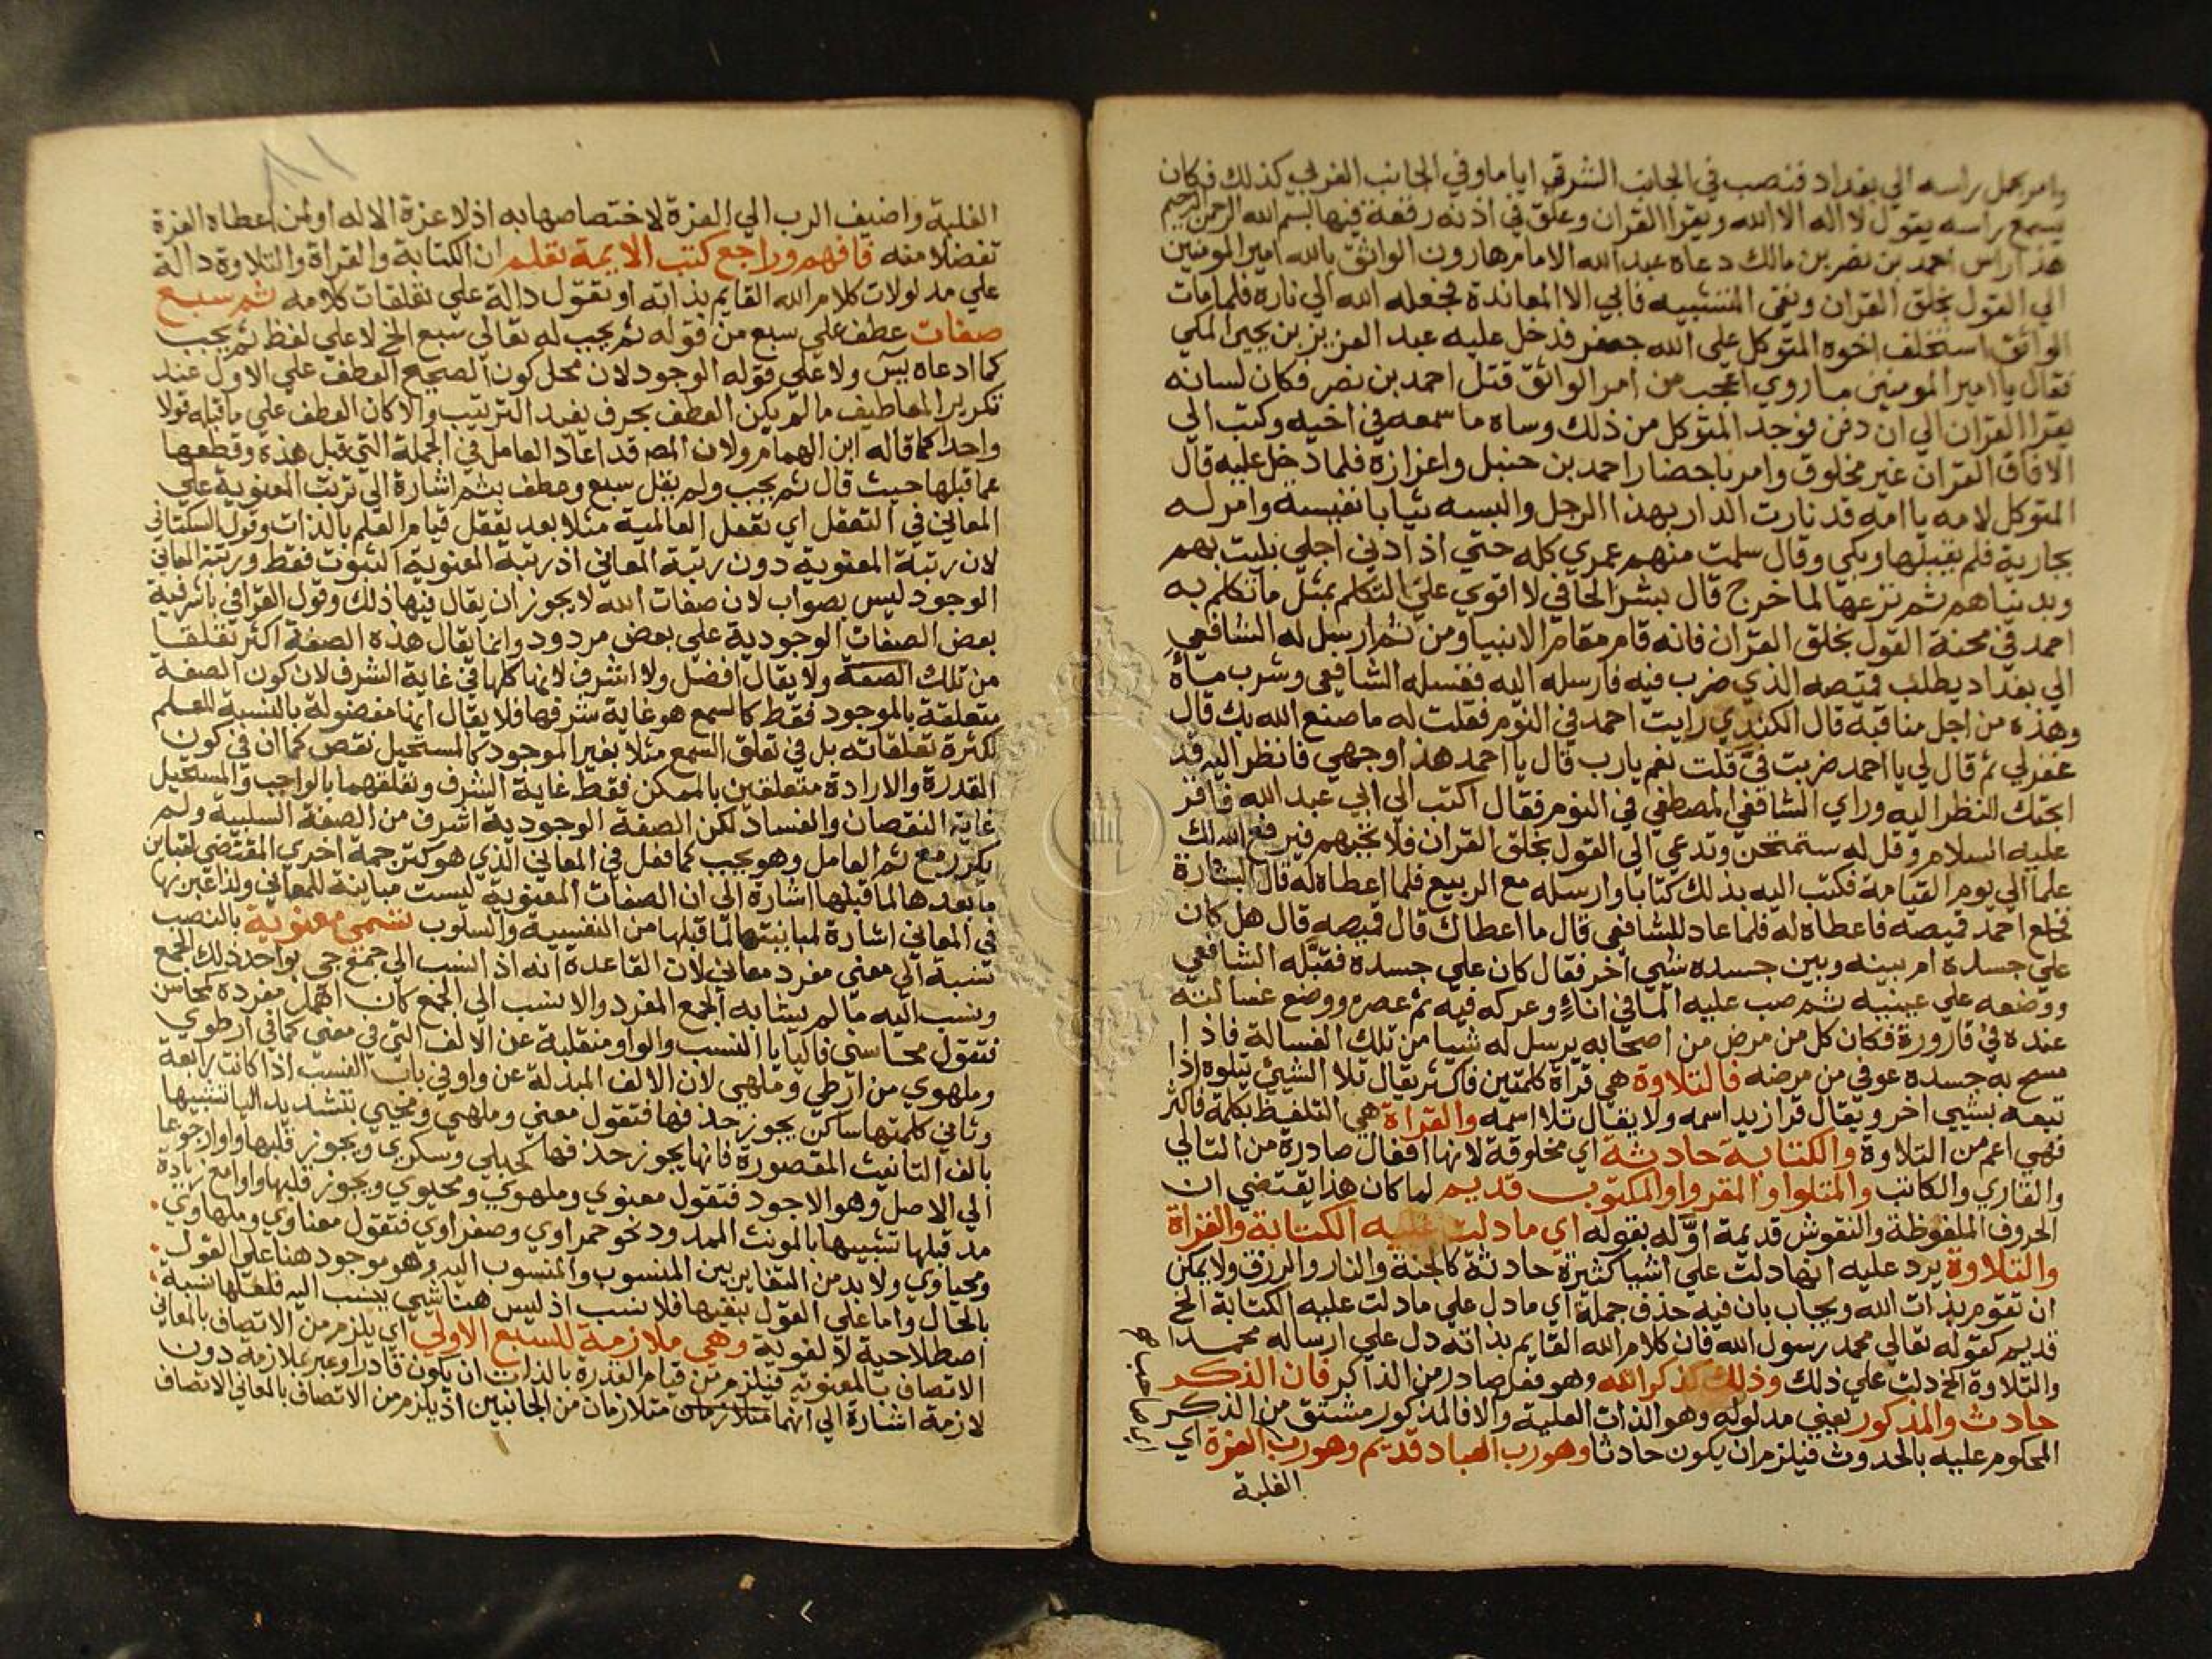 وامر بحمل راسه الي بغداد فنصب في الجانب الشرقي اياما وفي الجانب الغربي كذلك فكان
يسمع راسه يقول لا اله الا الله ويقرا القران وعلق في اذنه رقعة فيها بسم الله الرحمن الرحيم
هذا راس احمد بن نصر بن مالك دعاه عبد الله الامام هارون الواثق بالله امير المومنين
الي القول بخلق القران ونفي التشبيه فابي الا المعاندة فجعله الله الي ناره فلما مات
الواثق استخلف اخوه المتوكل علي الله جعفر فدخل عليه عبد العزيز بن يحيي المكي
فقال يا امير المومنين ما روي اعجب من امر الواثق قتل احمد بن نصر فكان لسانه
يقرا القران الي ان دفن فوجد المتوكل من ذلك وساه ما سمعه في اخيه وكتب الي
الافاق القران غير مخلوق وامر باحضار احمد بن حنبل واعزازه فلما دخل عليه قال
المتوكل لامه يا امه قد نارت الدار بهذا الرجل والبسه ثيابا نفيسة وامر له
بجارية فلم يقبلها وبكي وقال سلمت منهم عمري كله حتي اذا دني اجلي بليت بهم
وبدنياهم ثم نزعها لما خرج قال بشر الحافي لا اقوي علي التكلم بمثل ما تكلم به
احمد في محنة القول بخلق القران فانه قام مقام الانبيا ومن ثم ارسل له الشافعي
الي بغداد يطلب قميصه الذي ضرب فيه فارسله اليه فغسله الشافعي وشرب ماه
وهذه من اجل مناقبه قال الكندي رايت احمد في النوم فقلت له ما صنع الله بك قال
غفر لي ثم قال لي يا احمد ضربت فيّ قلت نعم يارب قال يا احمد هذا وجهي فانظر اليه قد
ابحتك النظر اليه وراي الشافعي المصطفي في النوم فقال اكتب الي ابي عبد الله فاقر
عليه السلام وقل له ستمتحن وتدعي الي القول بخلق القران فلا تجبهم فيرفع الله لك
علما الي يوم القيامة فكتب اليه بذلك كتابا وارسله مع الربيع فلما اعطاه له قال البشارة
فخلع احمد قميصه فاعطاه له فلما عاد للشافعي قال ما اعطاك قال قميصه قال هل كان
علي جسده ام بينه وبين جسده شيي اخر فقال كان علي جسده فقبّله الشافعي
ووضعه علي عينيه ثم صب عليه الما في اناءٍ وعركه فيه ثم عصره ووضع غسالته
عنده في قارورة فكان كل من مرض من اصحابه يرسل له شيا من تلك الغسالة فاذا
مسح به جسده عوفي من مرضه فالتلاوة هي قراة كلمتين فاكثر يقال تلا الشيئ يتلوه اذا
تبعه بشيي اخر ويقال قرا زيد اسمه ولا يقال تلا اسمه والقراة هي التلفيظ بكلمة فاكثر
فهي اعم من التلاوة والكتابة حادثة اي مخلوقة لانها افعال صادرة من التالي
والقاري والكاتب والمتلوا والمقروا والمكتوب قديم لما كان هذا يقتضي ان
الحروف الملفوظة والنقوش قديمة اوّله بقوله اي ما دلت عليه الكتابة والقراة
والتلاوة يرد عليه انها دلت علي اشيا كثيرة حادثة كالجنة والنار والرزق ولا يمكن
ان تقوم بذات الله ويجاب بان فيه حذف جملة اي ما دل علي ما دلت عليه الكتابة الخ
قديم كقوله تعالي محمد رسول الله فان كلام الله القايم بذاته دل علي ارساله محمدا
والتلاوة الخ دلت علي ذلك وذلك كذكر الله وهو فعل صادر من الذاكر فان الذكر
حادث والمذكور يعني مدلوله وهو الذات العلية والا فالمذكور مشتق من الذكر
المحكوم عليه بالحدوث فيلزم ان يكون حادثا وهو رب العباد قديم وهو رب العزة اي
الغلبة
٨١
الغلبة واضيف الرب الي العزة لاختصاصها به اذ لا عزة الا له او لمن اعطاه العزة
تفضلا منه فافهم وراجع كتب الايمة تعلم ان الكتابة والقراة والتلاوة دالة
علي مدلولات كلام الله القايم بذاته او تقول دالة علي تعلقات كلامه ثم سبع
صفات عطف علي سبع من قوله ثم يجب له تعالي سبع الخ لا علي لفظ ثم يجب
كما ادعاه يس ولا علي قوله الوجود لان محل كون الصحيح العطف علي الاول عند
تكرير المعاطيف ما لم يكن العطف بحرف يفيد الترتيب والا كان العطف علي ما قبله قولا
واحدا كما قاله ابن الهمام ولان المص قد اعاد العامل في الجملة التي قبل هذه وقطعها
عما قبلها حيث قال ثم يجب ولم يقل سبع وعطف بثم اشارة الي ترتب المعنوية علي
المعاني في التعقل اي تعقل العالمية مثلا بعد تعقل قيام العلم بالذات وقول السكتاني
لان رتبة المعنوية دون رتبة المعاني اذ رتبة المعنوية الثبوت فقط ورتبة المعاني
الوجود ليس بصواب لان صفات الله لا يجوز ان يقال فيها ذلك وقول القرافي باشرفية
بعض الصفات الوجودية علي بعض مردود وانما يقال هذه الصفة اكثر تعلقا
من تلك الصفة ولا يقال افضل ولا اشرف لانها كلها في غاية الشرف لان كون الصفة
متعلقة بالموجود فقط كالسمع هو غاية شرفها فلا يقال انها مفضولة بالنسبة للعلم
لكثرة تعلقاته بل في تعلق السمع مثلا بغير الموجود كالمستحيل نقص كما ان في كون
القدرة والارادة متعلقين بالممكن فقط غاية الشرف وتعلقهما بالواجب والمستحيل
غاية النقصان والفساد لكن الصفة الوجودية اشرف من الصفة السلبية ولم
يكرر مع ثم العامل وهو يجب كما فعل في المعاني الذي هو كترجمة اخري المقتضي لتباين
ما بعدها لما قبلها اشارة الي ان الصفات المعنوية ليست مباينة للمعاني ولذا عبر بها
في المعاني اشارة لمباينتها لما قبلها من النفسية والسلوب تسمي معنوية بالنصب
نسبة الي معني مفرد معاني لان القاعدة انه اذا نسب الي جمع جي بواحد ذلك الجمع
ونسب اليه ما لم يشابه الجمع المفرد والا نسب الي الجمع كان اهمل مفرده كمحاسن
فتقول محاسني فاليا يا النسب والواو منقلبة عن الالف التي في معني كما في ارطوي
وملهوي من ارطي وملهي لان الالف المبدلة عن واو في باب النسب اذا كانت رابعة
وثاني كلمتها ساكن يجوز حذفها فتقول معني وملهي ومحيي بتشديد اليا تشبيها
بالف التانيث المقصورة فانها يجوز حذفها كحبلي وسكري ويجوز قلبها واوا رجوعا
الي الاصل وهو الاجود فتقول معنوي وملهوي ومحيوي ويجوز قلبها واوا مع زيادة
مد قبلها تشبيها بالمونث الممدود نحو حمراوي وصفراوي فتقول معناوي وملهاوي
ومحياوي ولا بد من التغاير بين المنسوب والمنسوب اليه وهو موجود هنا علي القول
بالحال واما علي القول بنفيها فلا نسب اذ ليس هنا شيي ينسب اليه فلعلها نسبة
اصطلاحية لا لغوية وهي ملازمة للسبع الاولي اي يلزم من الاتصاف بالمعاني
الاتصاف بالمعنوية فيلزم من قيام القدرة بالذات ان يكون قادرا وعبر بملازمة دون
لازمة اشارة الي انهما متلازمان متلازمان من الجانبين اذ يلزم من الاتصاف بالمعاني الاتصاف